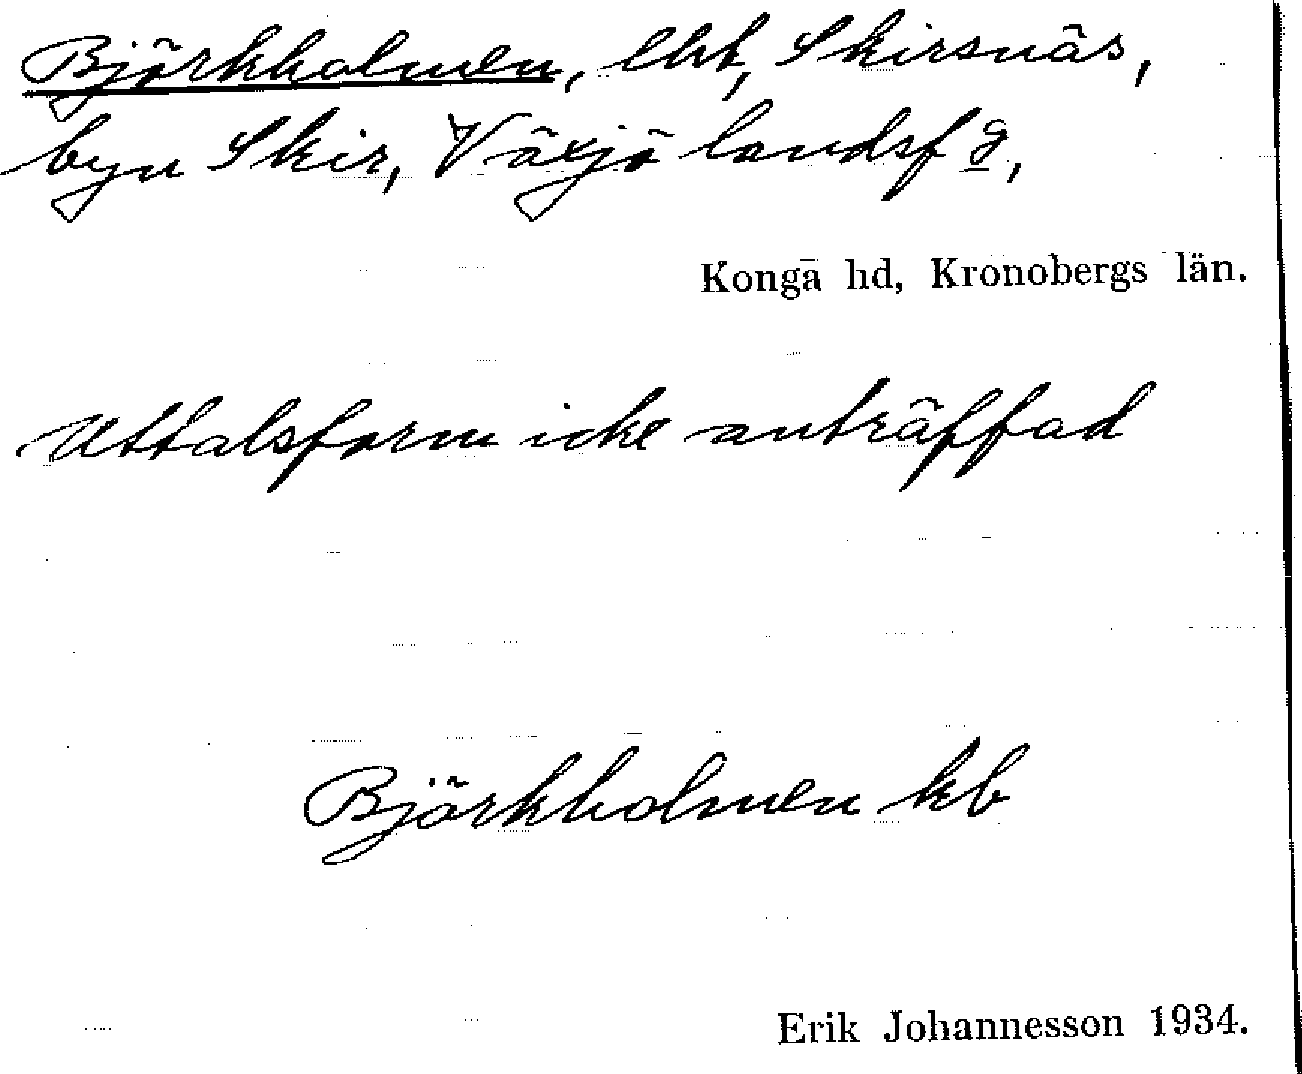 Björkholmen, lht, Skirsnäs,
byn Skir, Växjö landsf g,
Konga hd, Kronobergs län.
Uttalsform icke anträffad
Björkholmen kb
Erik Johannesson 1934.